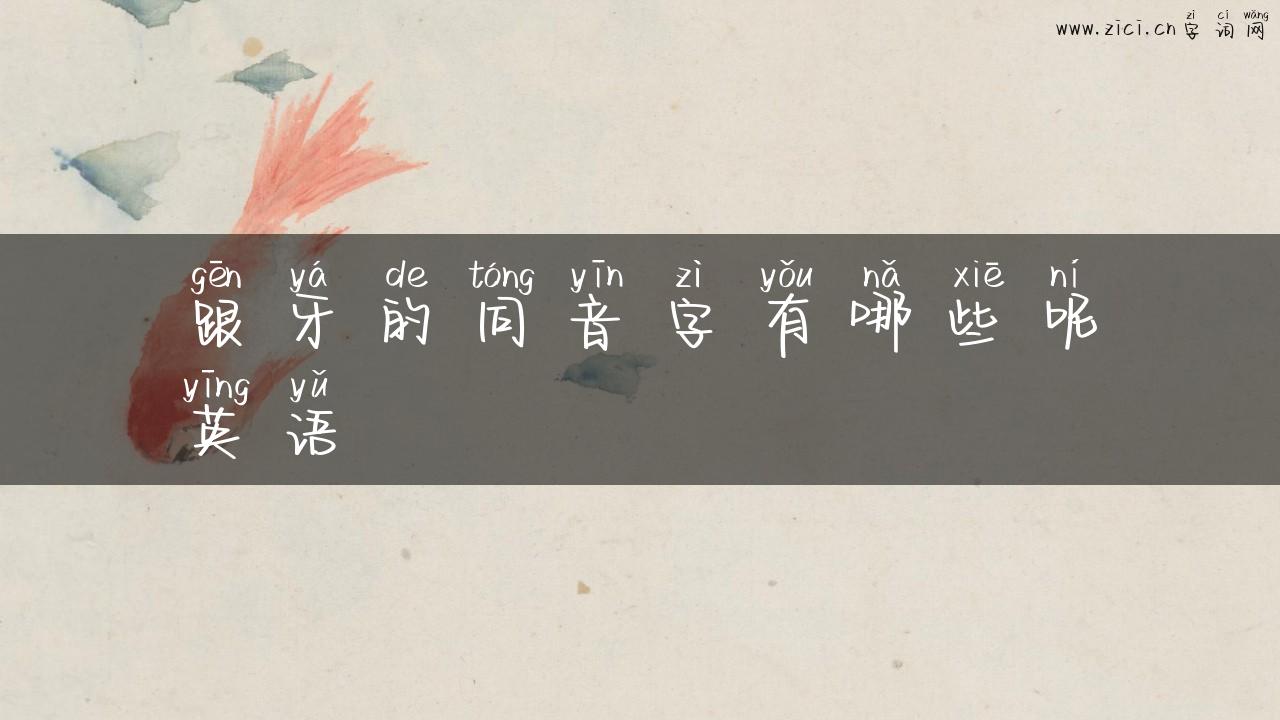 zì cí wǎng
www.zici.cn 字 词 网
gēn yá de tóng yīn zì yǒu nǎ xiē ní
跟 牙 的 同 音 字 有 哪 些 呢
yīng yǔ
英 语